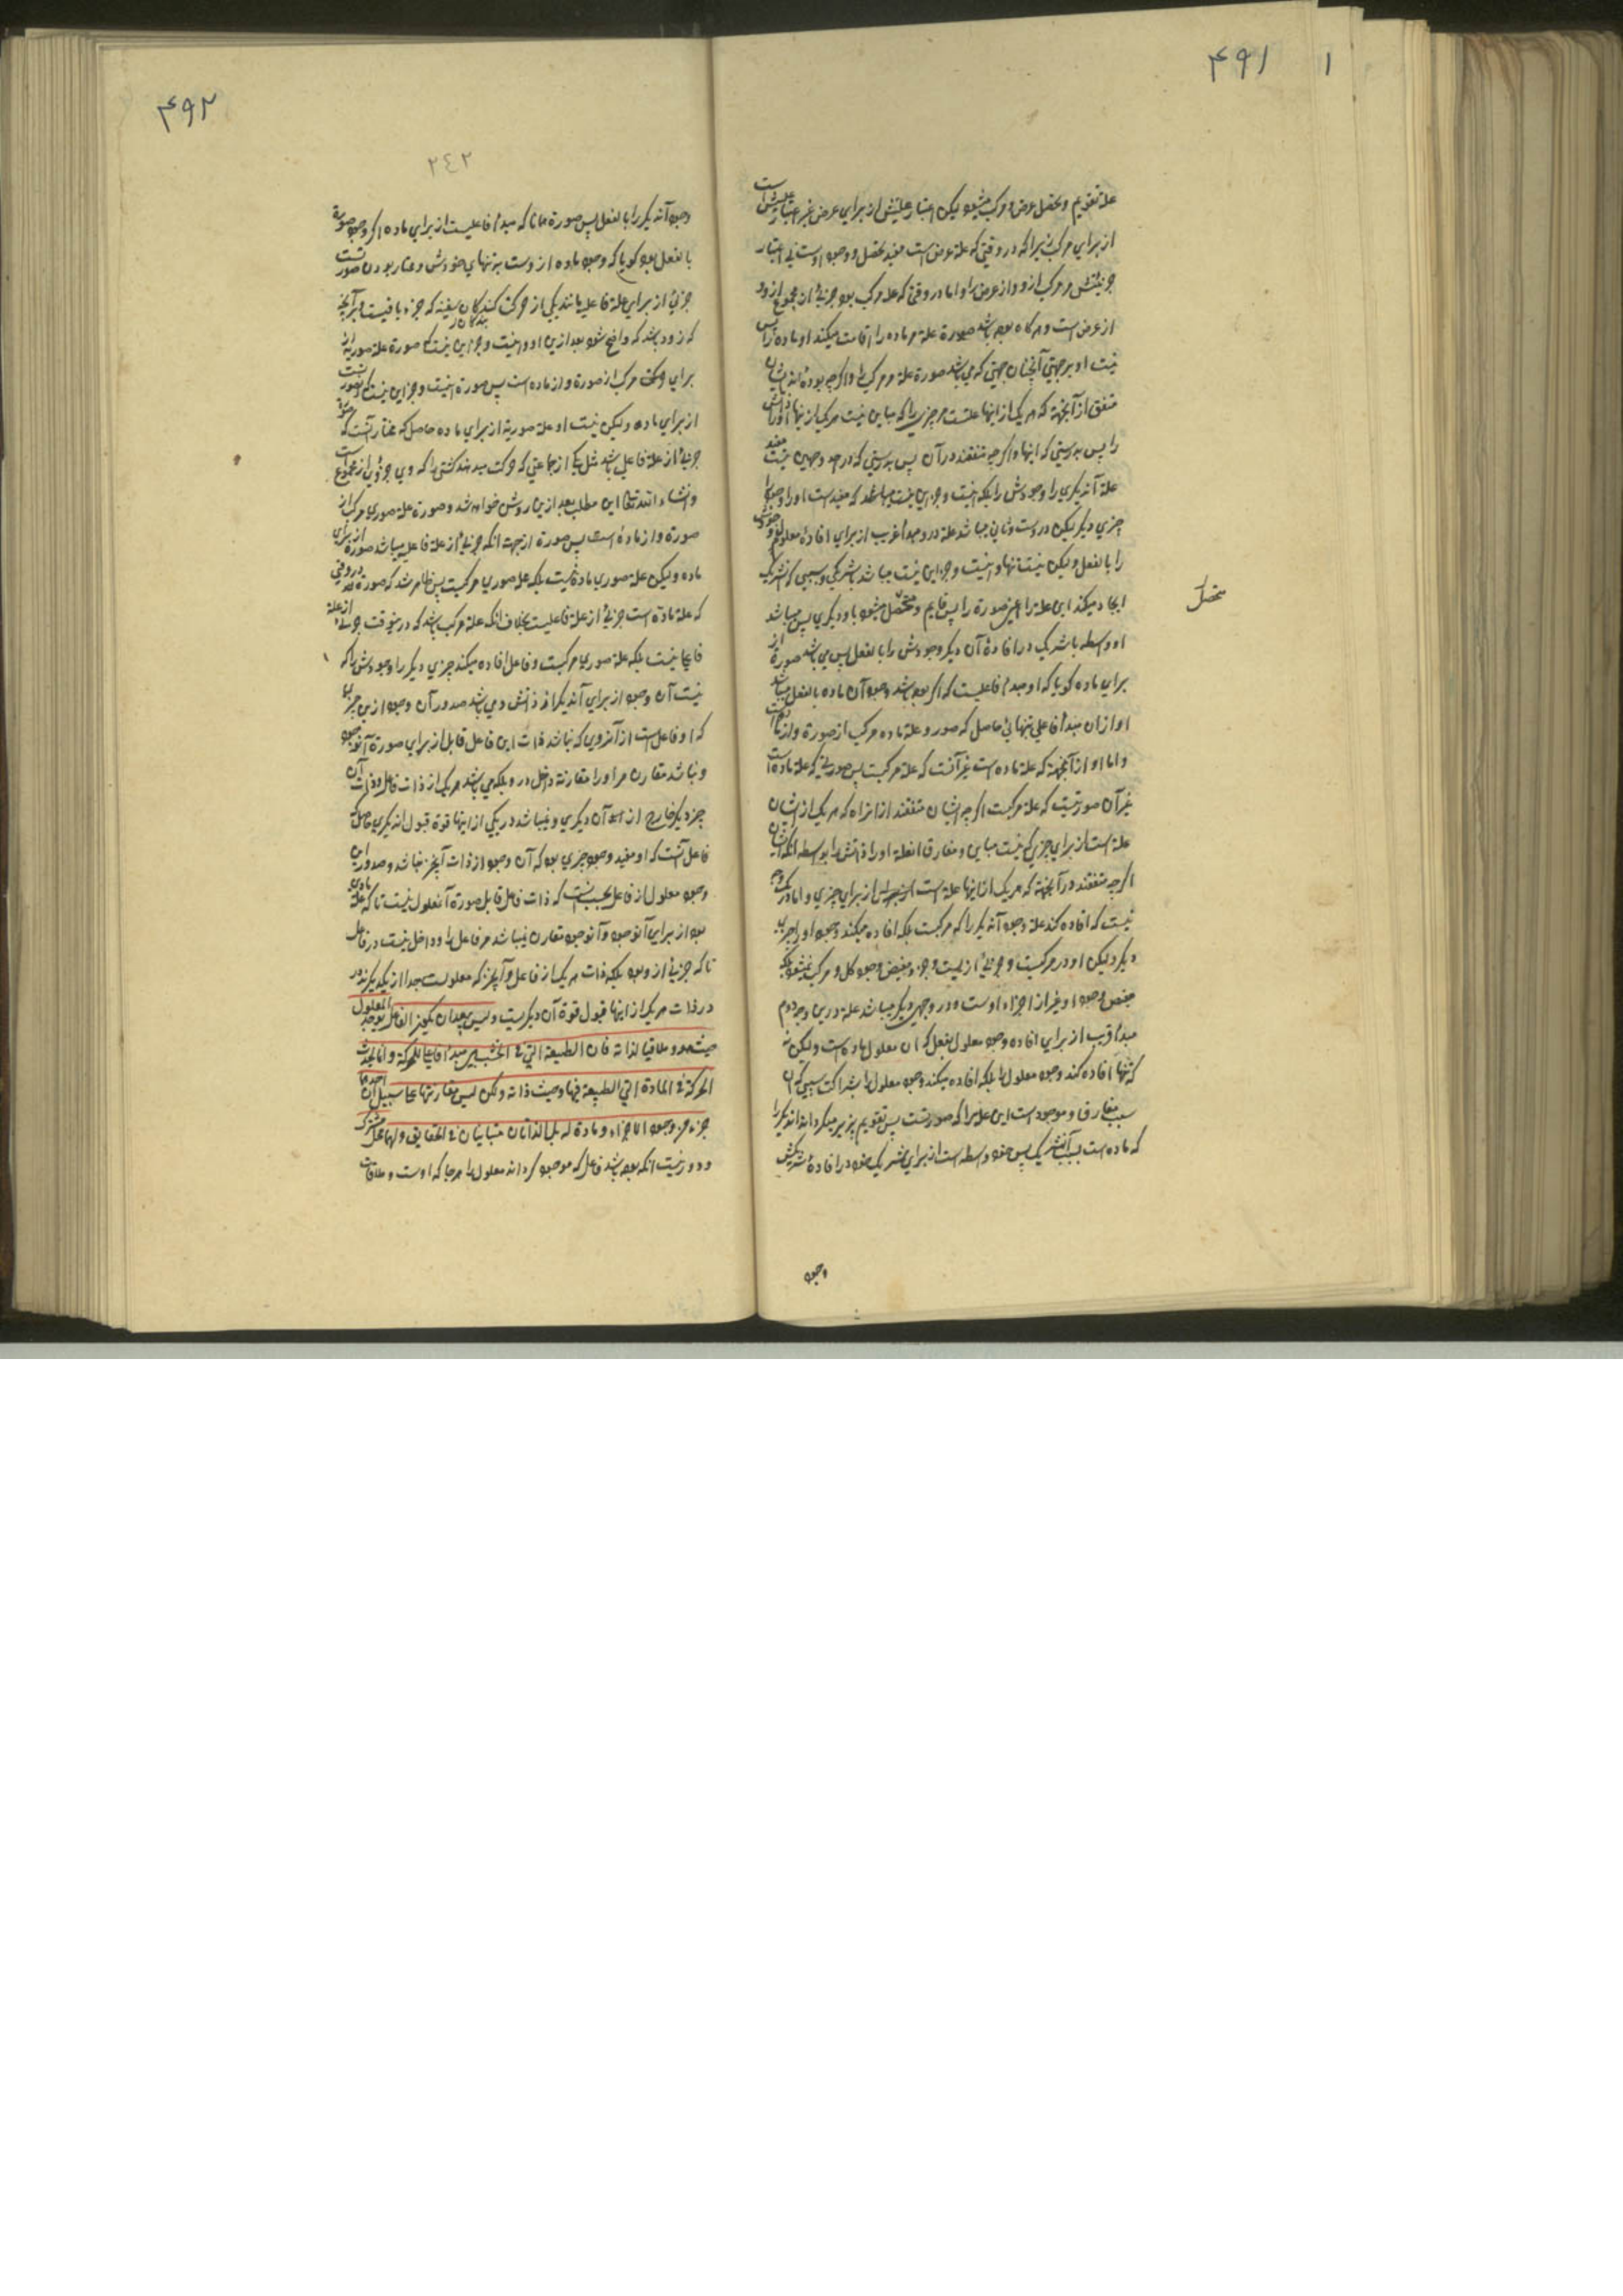 ۴۹۱
۱
علة تقویم و تحصل عرض و مرکب میشود لیکن اعتبار علیتش از برای عرض غیر اعتبار علیتش است
از برای مرکب زیرا که در وقتی که علة عرض است مفید تحصل و وجود اوست بی اعتبار
جزئیتش مر مرکب از و و از عرض را و اما در وقتی که علة مرکب بود جزئی از مجموع از و و
از عرض است و هر گاه بوده باشد صورة علة مر ماده را اقامت میکند او ماده را پس
نیست او بر جهتی آنچنان جهتی که می باشد صورة علة مر مرکب را و اگر چه بوده اند ایشان
متفق از آنجهة که هر یک از اینها علتست مر چیزی را که مباین نیست مر یک از اینها
را پس بدرستی که اینها و اگر چه متفقند در آن پس بدرستی که در احد وجهین نیست مفید
علة آن دیگری را وجودش را بلکه اینست و جز این نیست میباشد که مفیدست او را وجود را
چیزی دیگر لیکن دروست و ثانی میباشد علة درو مبدأ قریب از برای افادة معلول وجودش
را بالفعل و لیکن نیست تنها و اینست و جز این نیست میباشد با شریکی و سببی که
ایجاد میکند این علة را اعنی صورة را پس قایم و متحصّل میشود باو دیگری پس میباشد
محصل
او واسطه با شریک در افادة آن دیگر وجودش را بالفعل پس می باشد صورة از
برای ماده گویا که او مبدأ فاعلیست که اگر بوده باشد وجود آن ماده بالفعل میباشد
او از آن مبدأ فاعلی تنهائی حاصل که صور و علة ماده مرکب از صورة و از
و اما او از آنجهة که علة ماده است غیر آنست که علة مرکبست پس صورتی که علة ماده است
غیر آن صورتیست که علة مرکبست اگر چه ایشان متفقند از انراه که هر یک از ایشان
علة است از برای چیزی که نیست مباین و مفارق انعلة او را ذاتش را بواسطه آنکه ایشان
اگر چه متفقند در آنجهة که هر یک از اینها علة است از برای چیزی و اما در یک وجه
نیست که افاده کند علة وجود آن دیگر را که مرکبست بلکه افاده میکند وجود او را چیزی
دیگر و لیکن او در مرکبست و جزئی از نیست و جزء مفیض وجود کل و مرکب نمیشود بلکه
مفیض وجود او غیر از اجزاء اوست و در وجهی دیگر میباشد علة درین وجه دوم
مبدأ قریب از برای افاده وجود معلول بفعل که آن معلول ماده است و لیکن نه
که تنها افاده کند وجود معلول را بلکه افاده میکند وجود معلول را بشراکت سببی که آن
سبب مفارق و موجود است این علة را که صورتست پس تقویم پذیر میگرداند آن دیگر را
که ماده است بسبب آن شریک پس خود واسطه است از برای شریک خود در افادة شریکش
وجود
۴۹۲
۲٤۲
وجود آن دیگر را بالفعل پس صورة همانا که مبدأ فاعلیست از برای ماده اگر وجود صورة
بالفعل بود گویا که وجود ماده از وست به تنهای خودش و مختار بودن صورتست
جزئی از برای علة فاعلی مانند یکی از حرکت کنندگان سفینه که جزء باقیست و بر آنچه
که زود باشد که واضح شود بعد ازین او و اینست و جز این نیست که صورة علة صوریه از
برای مرکب از صورة و از ماده است پس صورة اینست و جز این نیست که صورتست
از برای ماده و لیکن نیست او علة صوریة از برای ماده حاصل که مختار آنست که صورة
جزئی از علة فاعلی باشد مثل یکی از جماعتی که حرکت میدهند کشتی را که وی جزوی از مجموعست
و انشاء الله تعالی این مطلب بعد ازین روشن خواهد شد و صورة علة صوری مرکب از
صورة و از ماده است پس صورة از جهت آنکه جزئی از علة فاعلی میباشد صورة از برای
ماده و لیکن علة صوری ماده نیست بلکه علة صوری مرکبست پس ظاهر شد که صورة در وقتی
که علة ماده است جزئی از علة فاعلیست بخلاف آنکه علة مرکب باشد که درینوقت جزئی از علة
فاعلی نیست بلکه علة صوری مرکبست و فاعل افاده میکند چیزی دیگر را وجودش را که
نیست آن وجود از برای آن دیگر از ذاتش و می باشد صدور آن وجود ازین چیزی
که او فاعل است از آنروی که نباشد ذات این فاعل قابل از برای صورة آنوجود
و نباشد مقارن مر او را مقارنة داخل درو بلکه می باشد هر یک از ذات فاعل و ذات آن
چیز دیگر خارج از آن دیگری و نمیباشد در یکی از اینها قوة قبول آن دیگری حاصل که
فاعل آنست که او مفید وجود چیزی بود که آن وجود از ذات آنچیز نباشد و صدور این
وجود معلول از فاعل بحیثیست که ذات فاعل قابل صورة آنمعلول نیست تا که علة مادی
بود از برای آنوجود و آنوجود مقارن نمیباشد مر فاعل را و داخل نیست در فاعل
تا که جزئی از و بود بلکه ذات هر یک از فاعل و آنچیز که معلولست جدا از یکدیگرند و در
در ذات هر یک از اینها قبول قوة آن دیگر نیست ولیس یبعد ان یکون الفاعل یوجد المعلول
حیث هو و ملاقیا لذاته فان الطبیعة التی فی الخشب هی مبدأ فاعلی للحرکة و انما یحدث
الحرکة فی المادة التی الطبیعة فیها و حیث ذاته و لکن لیس مقارنتها علی سبیل ان احدهما
جزء من وجود الاجزاء و مادة له بل الذاتان متباینان فی الحقایق و لهما محل مشترک
و دور نیست آنکه بوده باشد فاعل که موجود گرداند معلول را هر جا که اوست و ملاقات